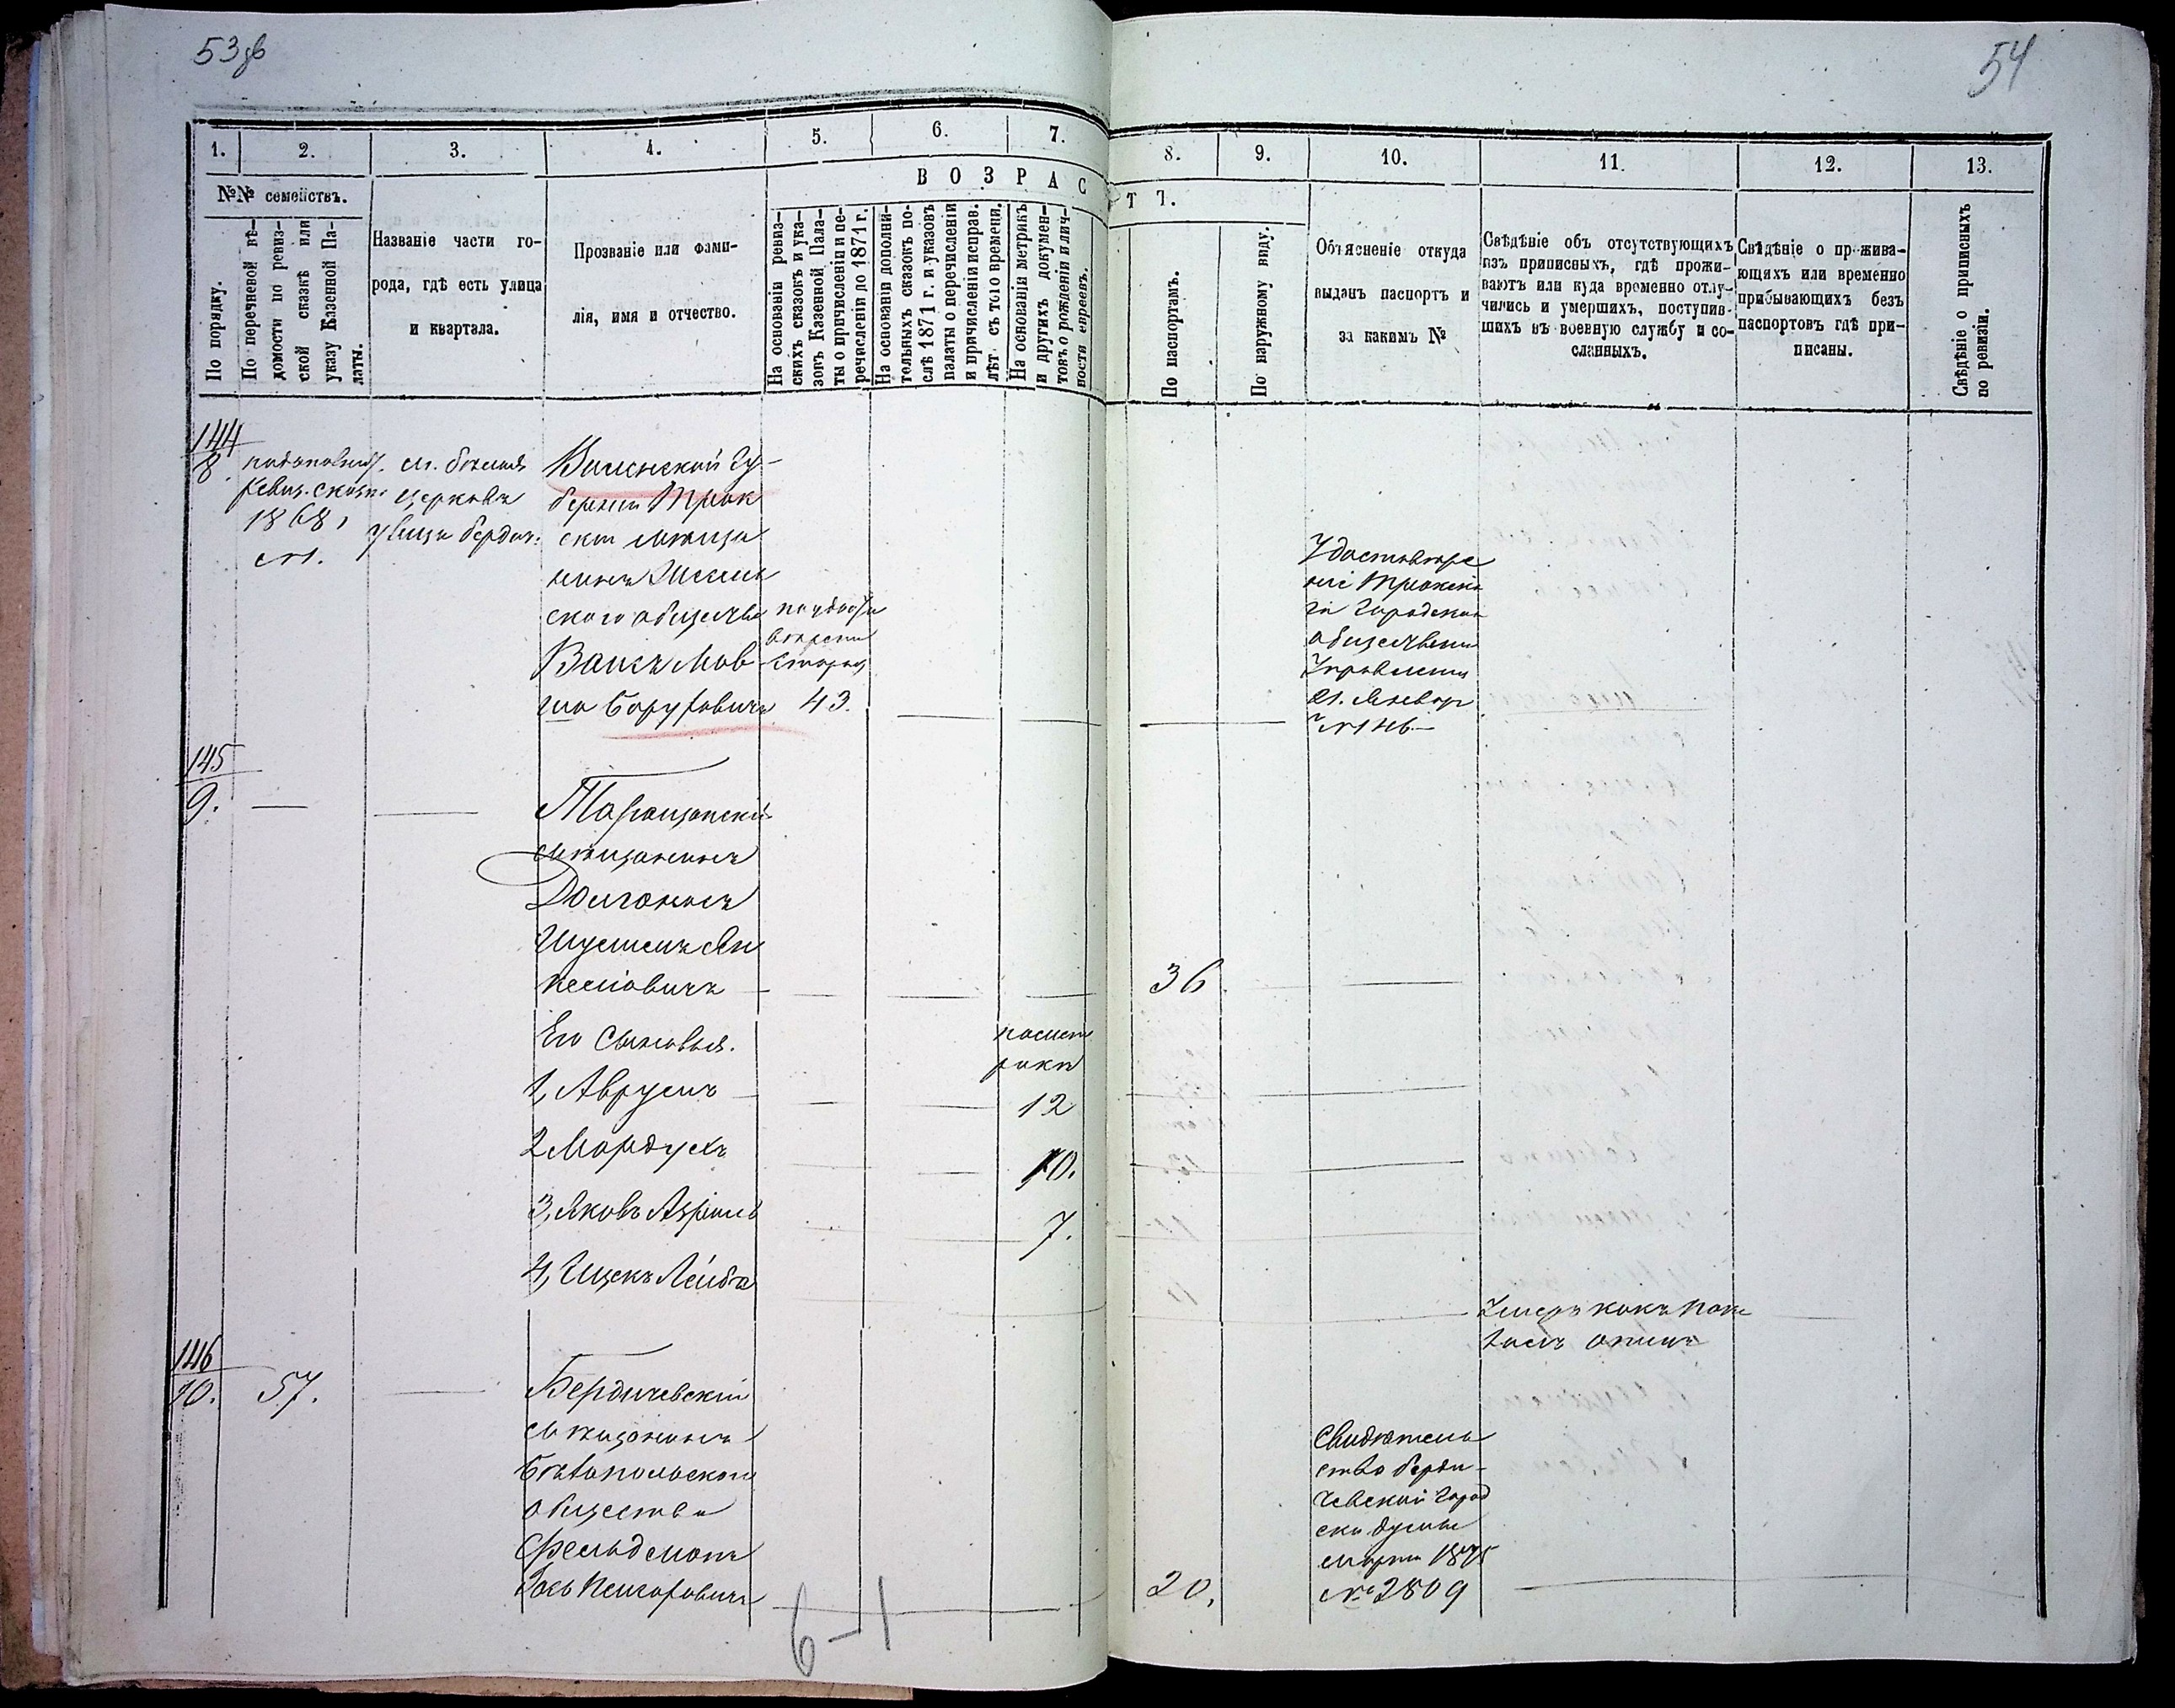 53 об
54
1.
2.
3.
4.
5.
6.
7.
8.
9.
10.
11.
12.
13.
№№ семействъ.
ВОЗРАС
ТЪ.
По порядку.
По перечневой вѣ-
домости по ревиз-
ской сказкѣ или
указу Казенной Па-
латы.
Названіе части го-
рода, гдѣ есть улица
и квартала.
Прозваніе или фами-
лія, имя и отчество.
На основаніи ревиз-
скихъ сказокъ и ука-
зокъ Казенной Пала-
ты о причисленіи и пе-
речисленіи до 1871 г.
На основаніи дополни-
тельныхъ сказокъ по-
слѣ 1871 г. и указовъ
палаты о перечисленіи
и причисленіи исправ.
лѣт. съ того времени.
На основаніи метрикъ
и другихъ докумен-
товъ о рожденіи и лич-
ности евреевъ.
По паспортамъ.
По наружному виду.
Объясненіе откуда
выданъ паспортъ и
за какимъ №
Свѣдѣніе объ отсутствующихъ
изъ приписныхъ, гдѣ прожи-
ваютъ или куда временно отлу-
чились и умершихъ, поступив-
шихъ въ военную службу и со-
сланныхъ.
Свѣдѣніе о прожива-
ющихъ или временно
прибывающихъ безъ
паспортовъ гдѣ при-
писаны.
Свѣдѣніе о приписныхъ
по ревизіи.
144
8.
ревиз. сказк.
1868
церковь
улица Бердич.
Виленской гу-
берніи Трок
скій мѣща
нинъ
ского общества
Ваксъ Мов
ша Боруховичъ
43.
Удостовѣре
ніе Тройска
го Городскаго
обществен
Управленія
Январ
145
9.
Таращанскій
мѣщанинъ
Шулимъ Ян
келіовичъ
36
Его сыновья.
по мет
рикѣ
1, Аврумъ
12
2 Мордухъ
10.
3, Яковъ Азріилъ
7.
4, Ицекъ Лейба
Умеръ какъ пока
залъ отецъ
146
10.
57.
Бердичевскій
мѣщанинъ
Бѣлопольскаго
общества
Фельдманъ
20.
Свидѣтель
ство Берди-
чевской Город
ской думы
марта 1875
№ 2809
6-1